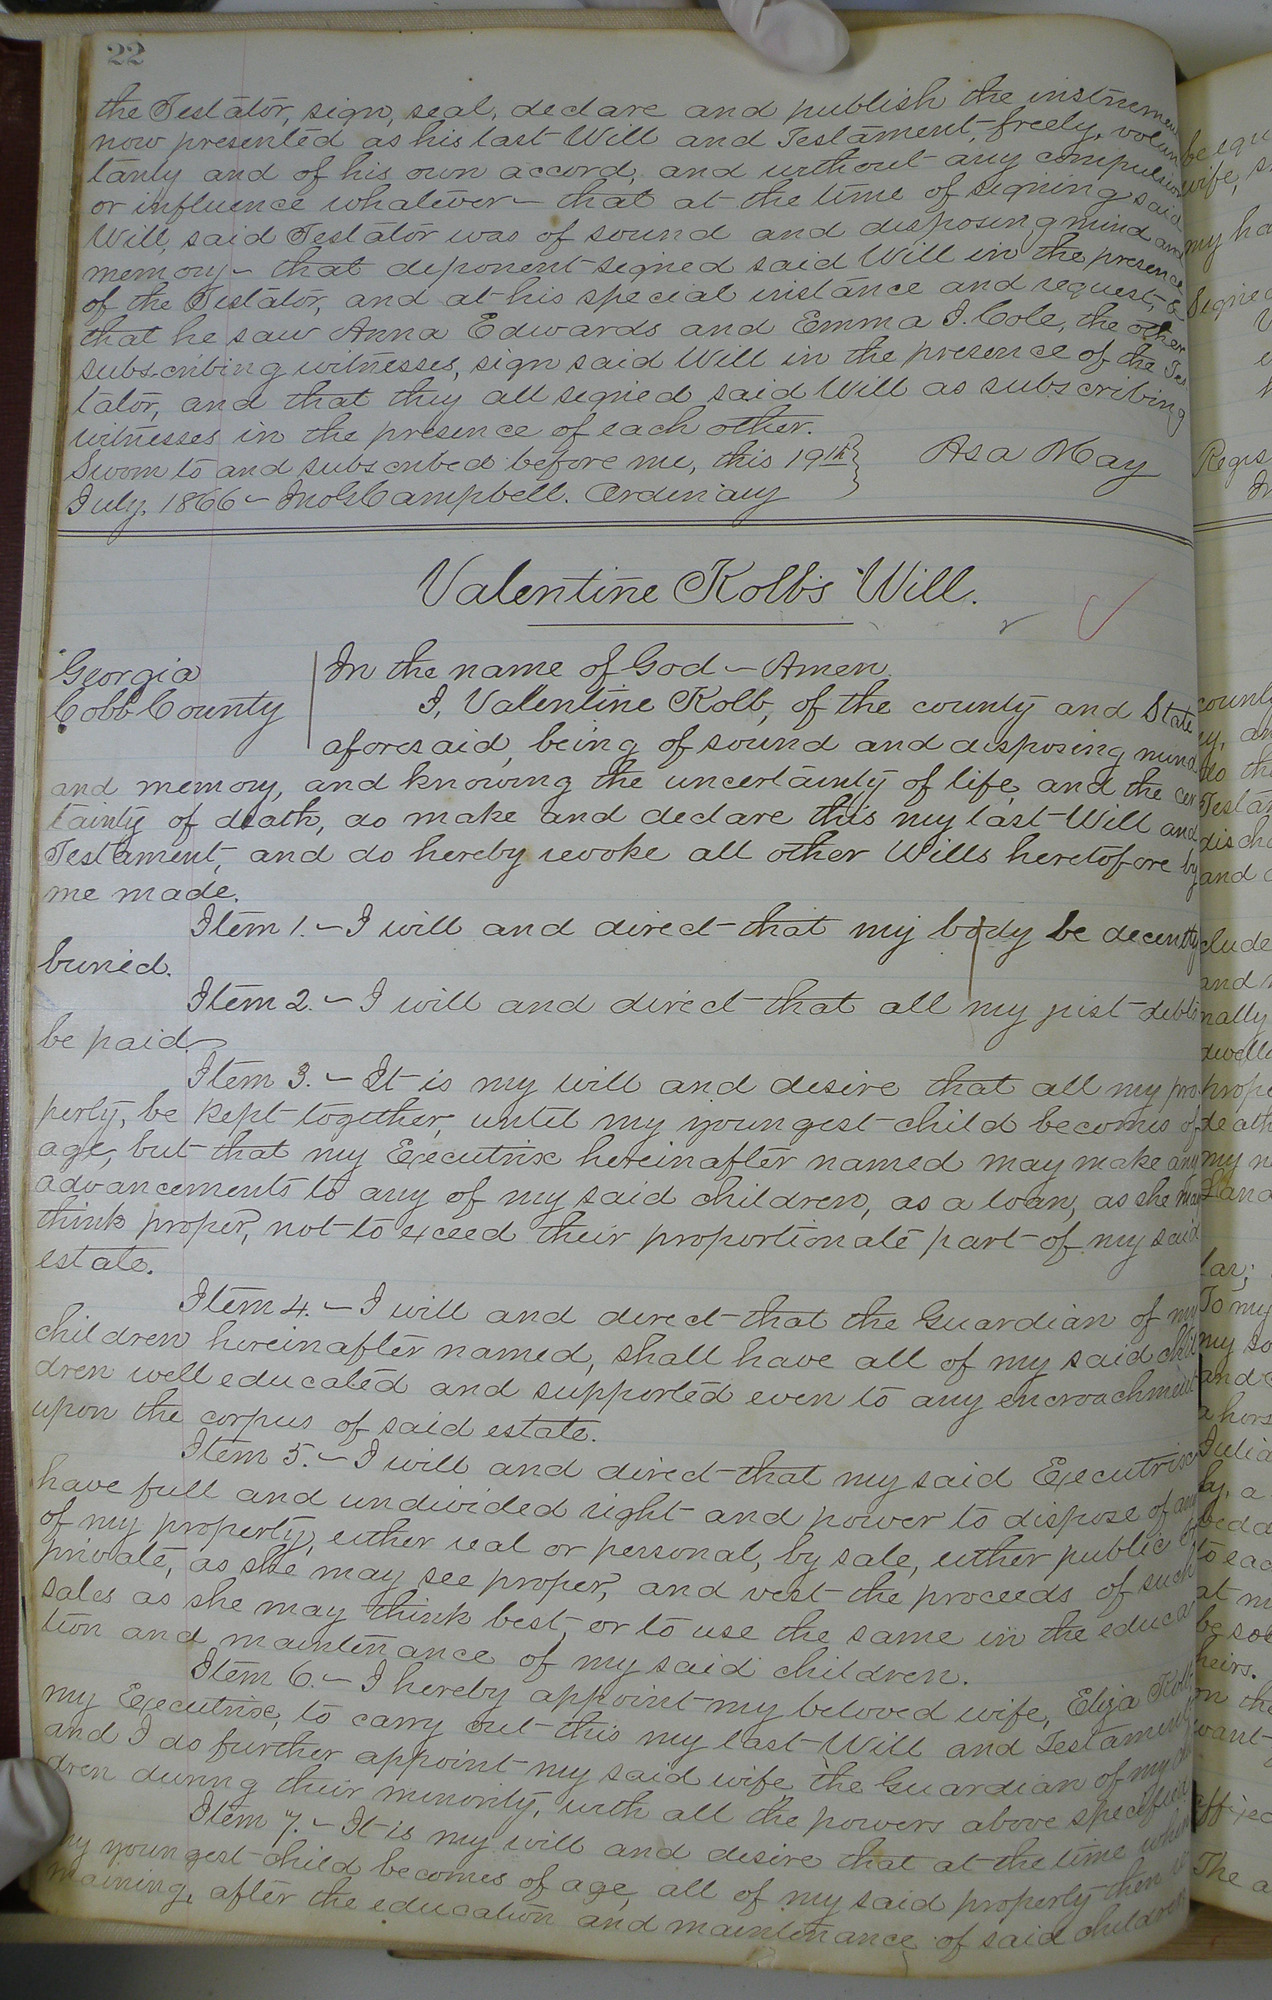 22
the Testator, sign, seal, declare and publish the instrument
now presented as his last Will and Testament, freely, volun
tarily and of his own accord, and without any compulsion
or influence whatever - that at the time of signing said
Will, said Testator was of sound and disposing mind and
memory - that deponent signed said Will in the presence
of the Testator, and at his special instance and request, &
that he saw Anna Edwards and Emma J. Cole, the other
subscribing witnesses, sign said Will in the presence of the Tes
tator, and that they all signed said Will as subscribing
witnesses in the presence of each other.
Sworn to and subscribed before me, this 19th } Asa May
July, 1866 - Jno G Campbell. Ordinary
Valentine Kolb's Will.
Georgia | In the name of God - Amen
Cobb County | I, Valentine Kolb, of the county and State
aforesaid, being of sound and disposing mind
and memory, and knowing the uncertainty of life, and the cer
tainty of death, do make and declare this my last Will and
Testament, and do hereby revoke all other Wills heretofore by
me made.
Item 1. - I will and direct that my body be decently
buried.
Item 2. - I will and direct that all my just debts
be paid.
Item 3. - It is my will and desire that all my pro
perty, be kept together, until my youngest child becomes of
age, but that my Executrix hereinafter named may make any
advancements to any of my said children, as a loan, as she may
think proper, not to exceed their proportionate part of my said
estate.
Item 4. - I will and direct that the Guardian of my
children hereinafter named, shall have all of my said chil
dren well educated and supported even to any encroachment
upon the corpus of said estate.
Item 5. - I will and direct that my said Executrix
have full and undivided right and power to dispose of any
of my property, either real or personal, by sale, either public or
private, as she may see proper, and vest the proceeds of such
sales as she may think best, or to use the same in the educa
tion and maintenance of my said children.
Item 6. - I hereby appoint my beloved wife, Eliza Kolb
my Executrix, to carry out this my last Will and Testament
and I do further appoint my said wife the Guardian of my chil
dren during their minority, with all the powers above specified
Item 7. - It is my will and desire that at the time when
my youngest child becomes of age, all of my said property then re
maining, after the education and maintenance of said children